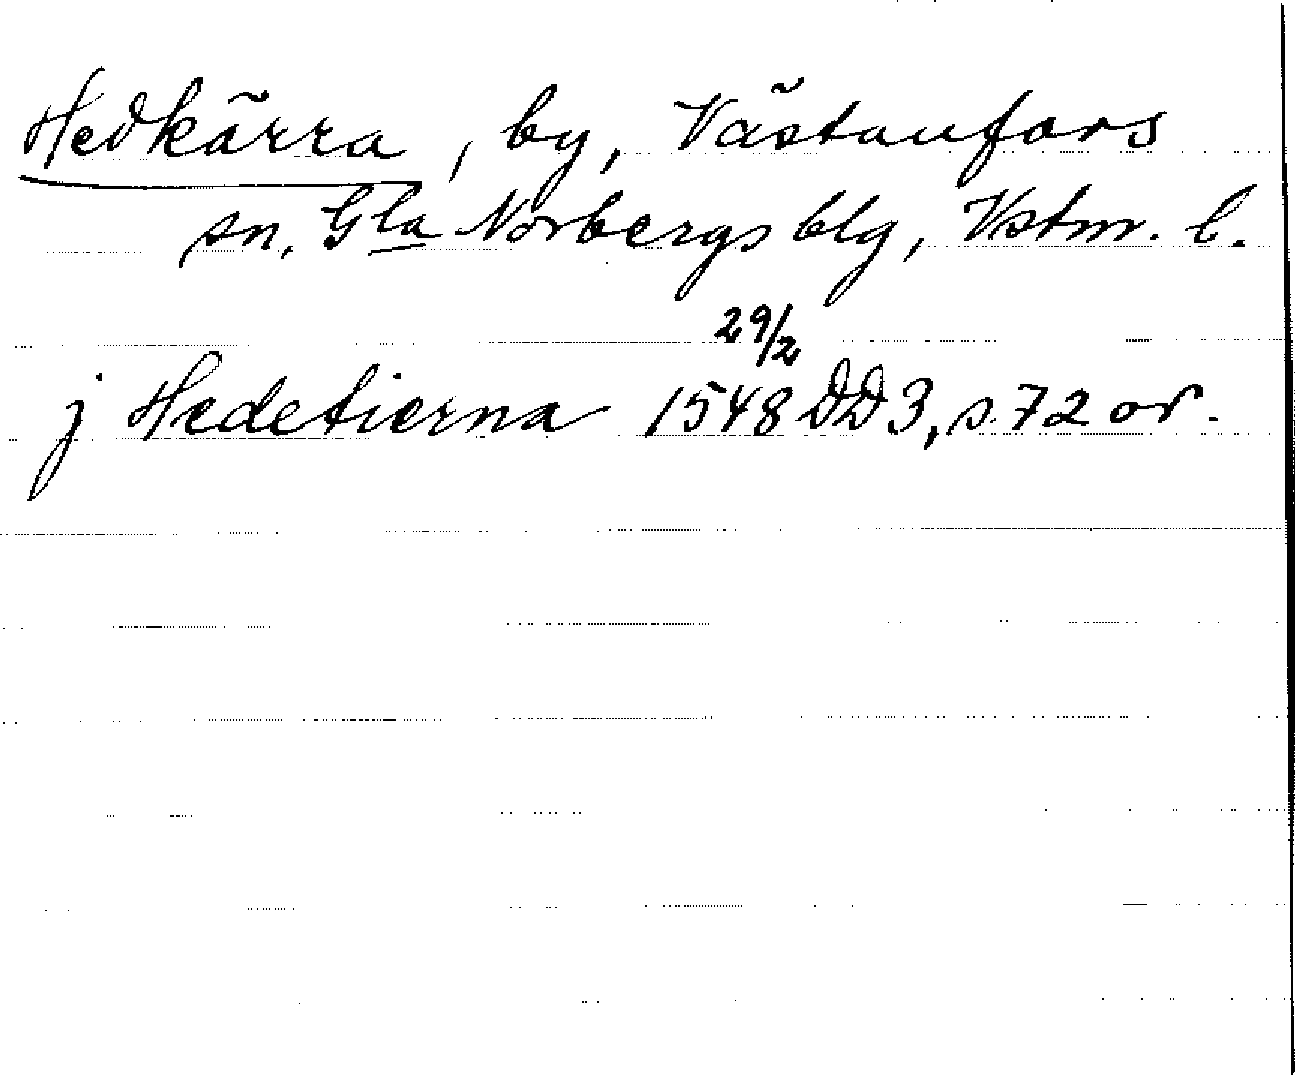 Hedkärra, by, Västanfors
sn, Gla Norbergs blg, Vstm. l.
29/2
j Hedetierna 1548 DD3, s. 72 or.